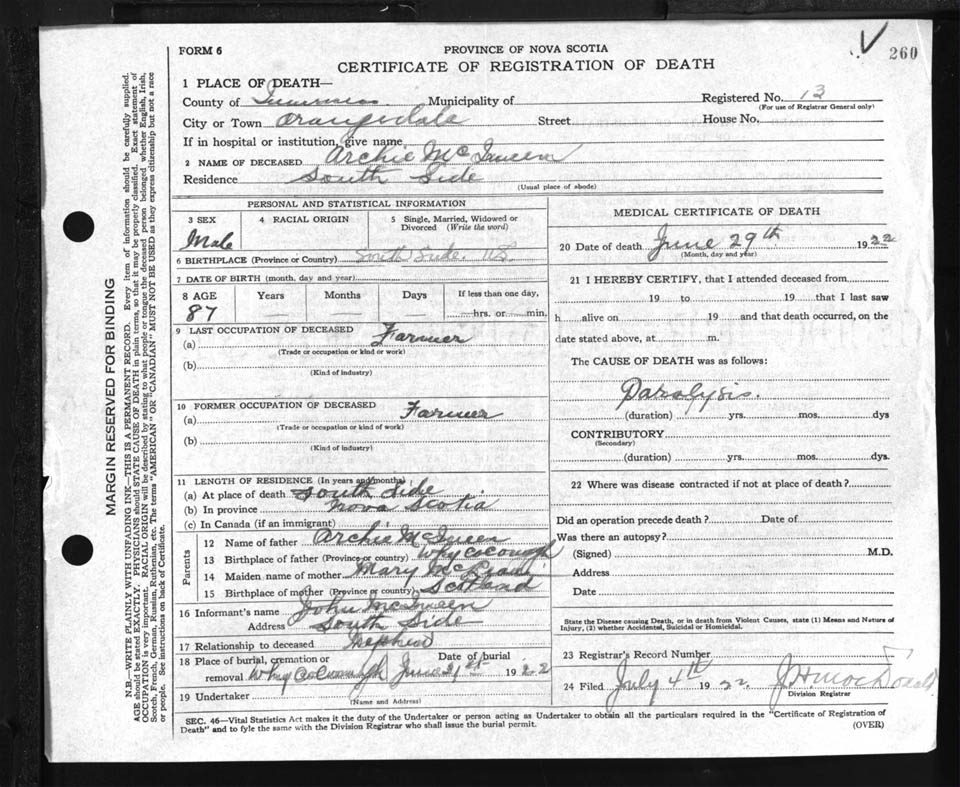 FORM 6
PROVINCE OF NOVA SCOTIA
260
CERTIFICATE OF REGISTRATION OF DEATH
1 PLACE OF DEATH—
County of Inverness Municipality of
Registered No. 13
(For use of Registrar General only)
City or Town Orangedale Street House No.
If in hospital or institution, give name
2 NAME OF DECEASED Archie McQueen
Residence South Side
(Usual place of abode)
PERSONAL AND STATISTICAL INFORMATION
3 SEX
Male
4 RACIAL ORIGIN
5 Single, Married, Widowed or Divorced (Write the word)
6 BIRTHPLACE (Province or Country) South Side. NS.
7 DATE OF BIRTH (month, day and year)
8 AGE
87
Years
Months
Days
If less than one day,
hrs. or min.
9 LAST OCCUPATION OF DECEASED
(a) Farmer
(Trade or occupation or kind or work)
(b)
(Kind of industry)
10 FORMER OCCUPATION OF DECEASED
(a) Farmer
(Trade or occupation or kind of work)
(b)
(Kind of industry)
11 LENGTH OF RESIDENCE (In years and months)
(a) At place of death South Side
(b) In province Nova Scotia
(c) In Canada (if an immigrant)
Parents
12 Name of father Archie McQueen
13 Birthplace of father (Province or country) Whycocomagh
14 Maiden name of mother Mary
15 Birthplace of mother (Province or country) Scotland
16 Informant's name John McQueen
Address South Side
17 Relationship to deceased Nephew
18 Place of burial, cremation or removal Whycocomagh
Date of burial June 31st 1922
19 Undertaker
(Name and Address)
MEDICAL CERTIFICATE OF DEATH
20 Date of death June 29th 1922
(Month, day and year)
21 I HEREBY CERTIFY, that I attended deceased from
19 to 19 that I last saw
h alive on 19 and that death occurred, on
date stated above, at m.
The CAUSE OF DEATH was as follows:
Paralysis.
(duration) yrs. mos. dys
CONTRIBUTORY
(Secondary)
(duration) yrs. mos. dys.
22 Where was disease contracted if not at place of death?
Did an operation precede death? Date of
Was there an autopsy?
(Signed) M.D.
Address
Date
State the Disease causing Death, or in death from Violent Causes, state (1) Means and Nature of
Injury, (2) whether Accidental, Suicidal or Homicidal.
23 Registrar's Record Number
24 Filed July 4th 1922. MacDonald
Division Registrar
SEC. 46—Vital Statistics Act makes it the duty of the Undertaker or person acting as Undertaker to obtain all the particulars required in the "Certificate of Registration of
Death" and to fyle the same with the Division Registrar who shall issue the burial permit.
(OVER)
MARGIN RESERVED FOR BINDING
N.B.—WRITE PLAINLY WITH UNFADING INK—THIS IS A PERMANENT RECORD. Every item of information should be carefully supplied.
AGE should be stated EXACTLY. PHYSICIANS should STATE CAUSE OF DEATH in plain terms, so that it may be properly classified. Exact statement of
OCCUPATION is very important. RACIAL ORIGIN will be described by stating to what people or tongue the deceased person belonged whether English, Irish,
Scotch, French, German, Russian, Ruthenian, etc. The terms "AMERICAN" or "CANADIAN" MUST NOT BE USED as they express citizenship but not a race
or people. See instructions on back of Certificate.